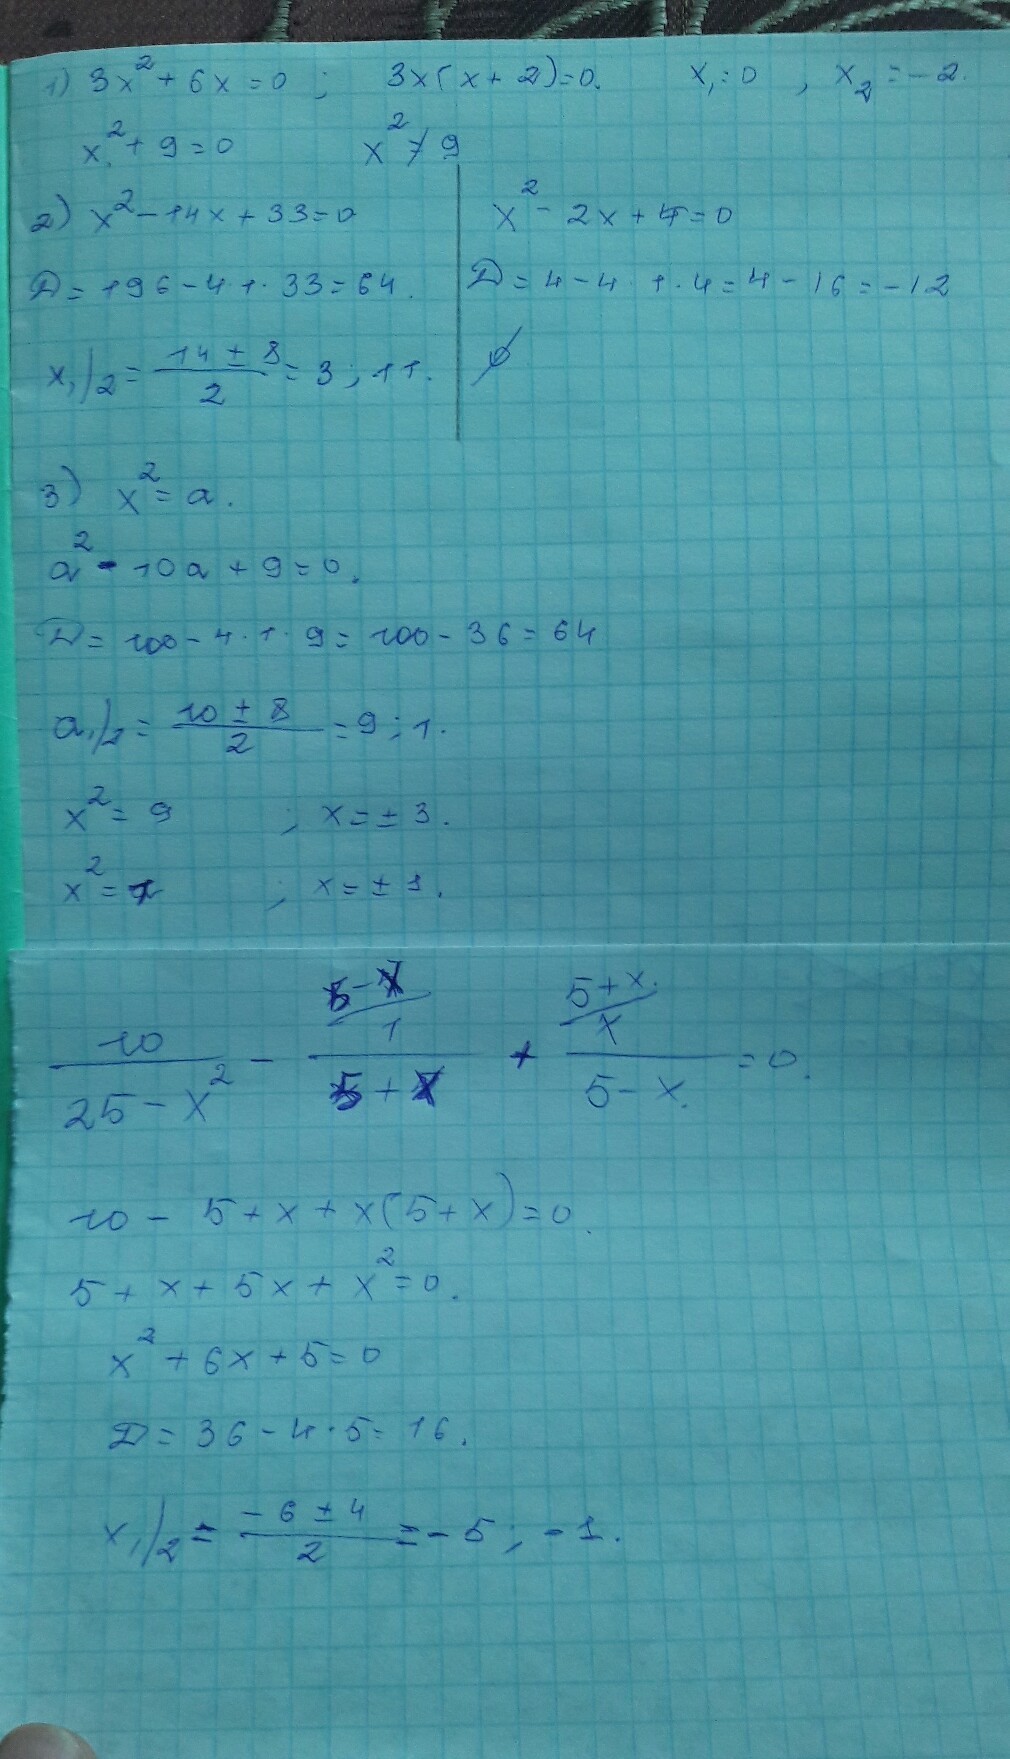 1) 3x² + 6x = 0 ; 3x(x + 2) = 0. x₁ = 0 , x₂ = -2.
x² + 9 = 0 x² ≠ 9
2) x² - 14x + 33 = 0
D = 196 - 4·1·33 = 64.
x₁/₂ = (14 ± 8)/2 = 3 ; 11.
x² - 2x + 4 = 0
D = 4 - 4·1·4 = 4 - 16 = -12
∅
3) x² = a.
a² - 10a + 9 = 0.
D = 100 - 4·1·9 = 100 - 36 = 64
a₁/₂ = (10 ± 8)/2 = 9 ; 1.
x² = 9 ; x = ± 3.
x² = 1 ; x = ± 1.
10/(25 - x²) - (5 - x)/1/(5 + x) + (5 + x)/x/(5 - x) = 0.
10 - 5 + x + x(5 + x) = 0.
5 + x + 5x + x² = 0.
x² + 6x + 5 = 0
D = 36 - 4·5 = 16.
x₁/₂ = (-6 ± 4)/2 = -5 ; -1.